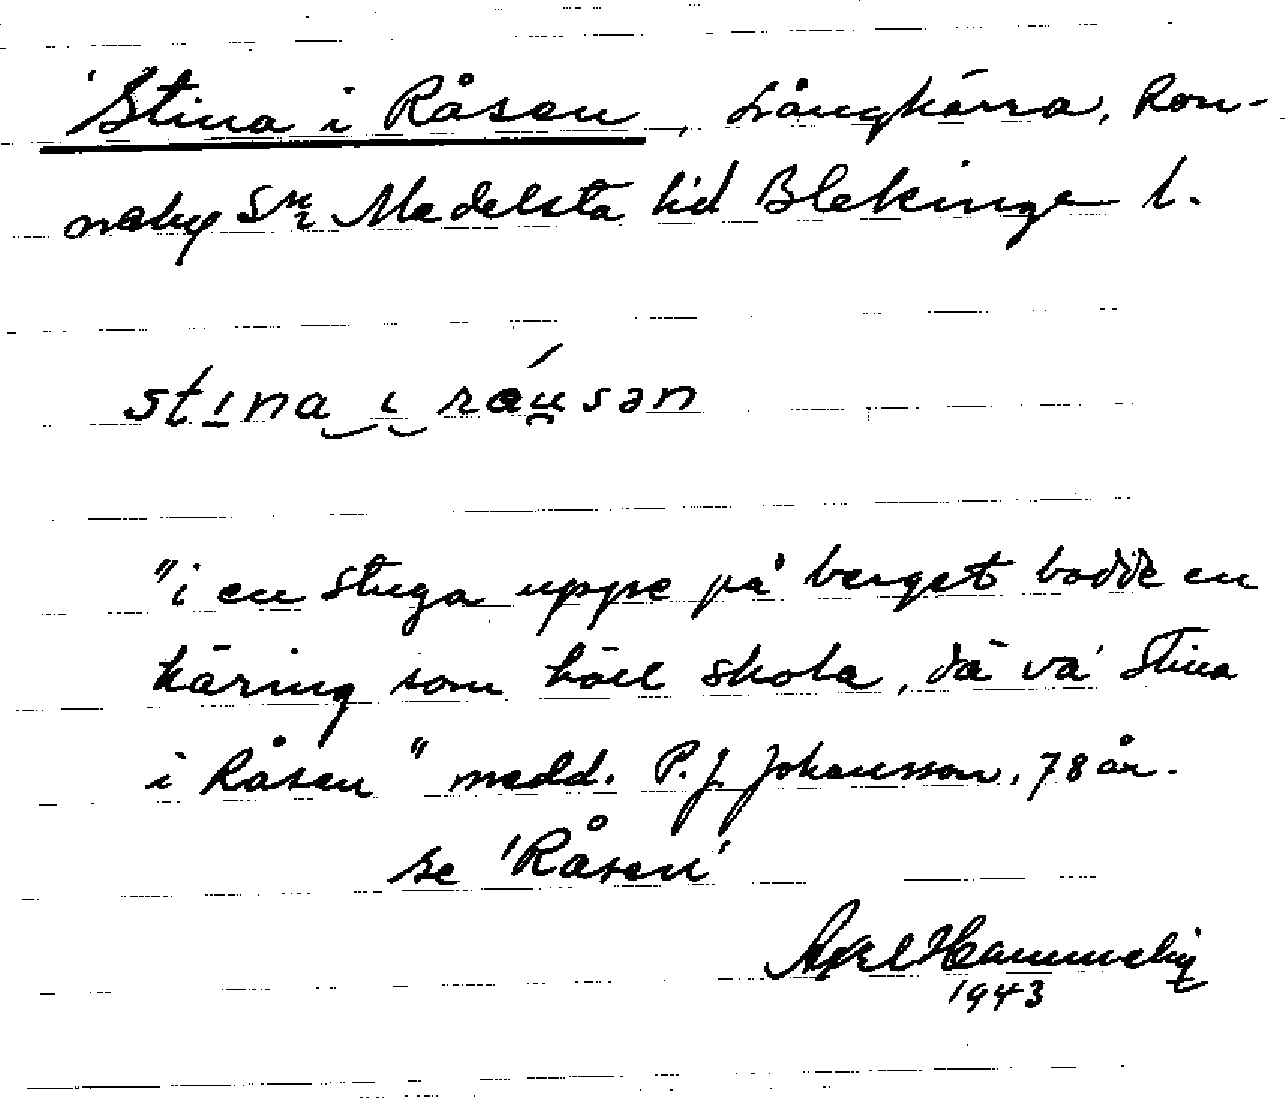 'Stina i Råsen, Långkärra, Ron-
neby Sn Medelsta hd Blekinge l.
stina i ráu̯sən
"i en stuga uppe på berget bodde en
käring som höll skola, dä va' Stina
i Råsen" medd. P. J. Johansson, 78 år.
se 'Råsen'
Axel Hammeby
1943